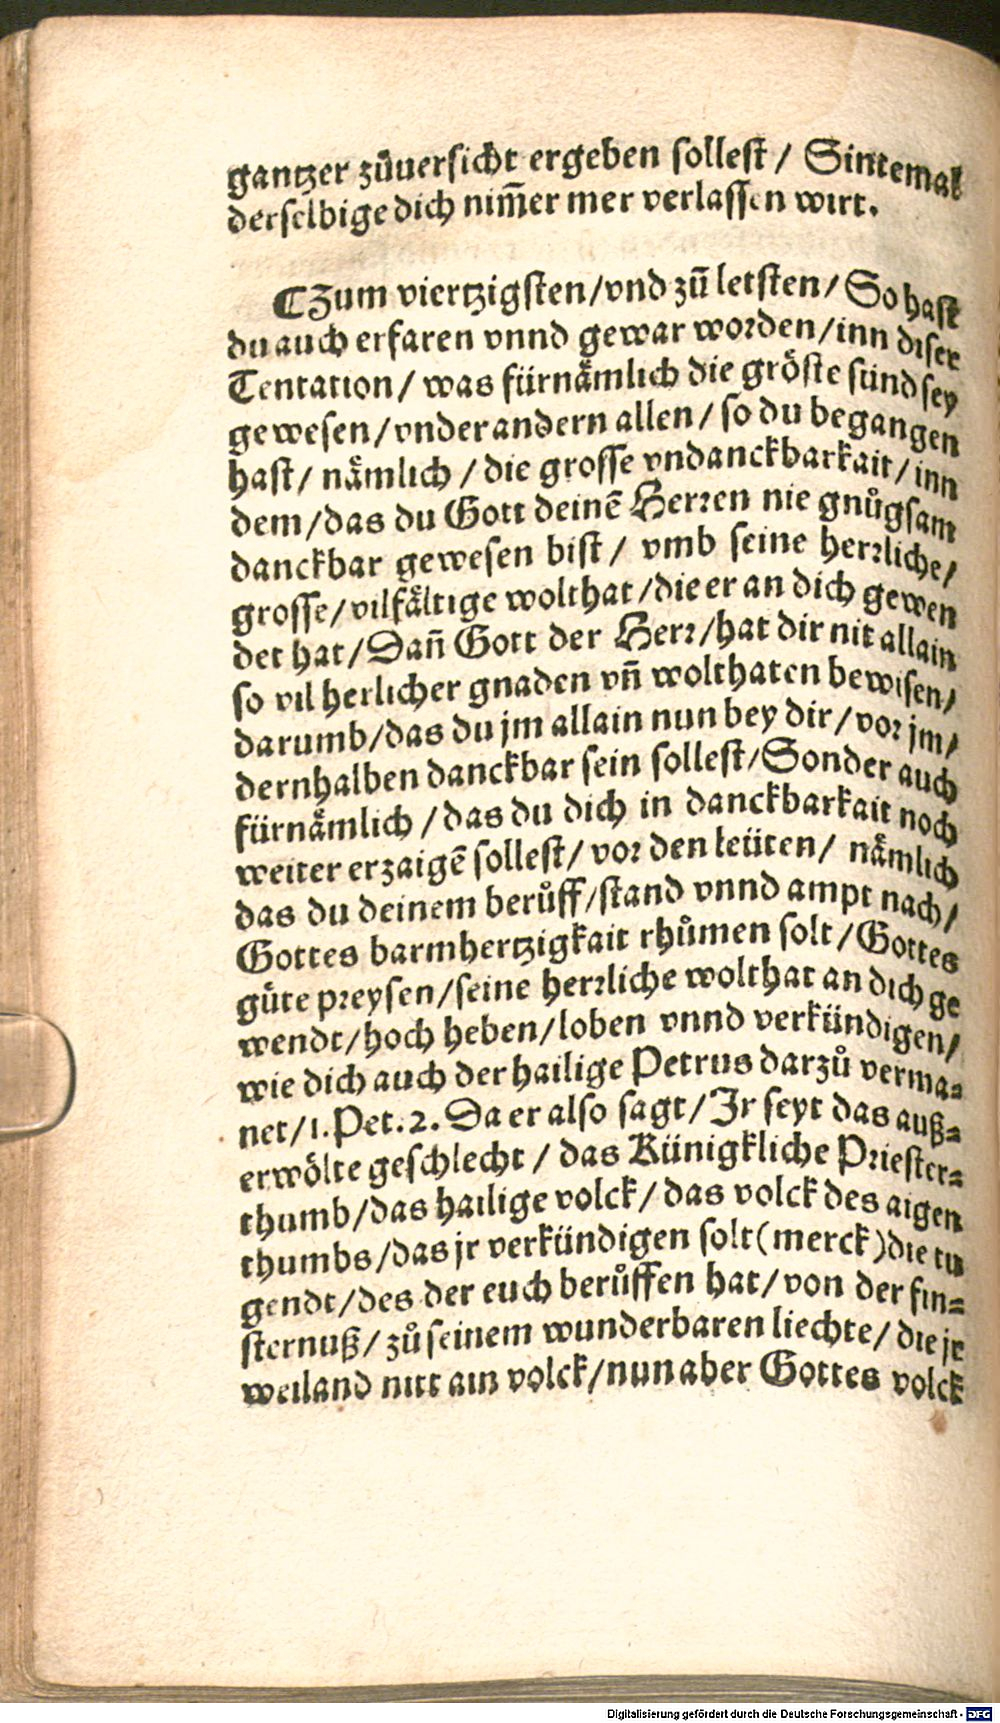 gantzer zůuersicht ergeben sollest / Sintemal
derselbige dich nim̃er mer verlassen wirt.
❡Zum viertzigsten/vnd zů letsten/So hast
du auch erfaren vnnd gewar worden/inn diser
Tentation/ was fürnämlich die gröste sünd sey
gewesen/vnder andern allen/ so du begangen
hast/ nämlich /die grosse vndanckbarkait/inn
dem/das du Gott deinẽ Herren nie gnůgsam
danckbar gewesen bist/ vmb seine herrliche/
grosse/vilfältige wolthat/die er an dich gewen
det hat/Dañ Gott der Herr/hat dir nit allain
so vil herlicher gnaden vñ wolthaten bewisen/
darumb/das du jm allain nun bey dir/vor jm/
dernhalben danckbar sein sollest/Sonder auch
fürnämlich /das du dich in danckbarkait noch
weiter erzaigẽ sollest/ vor den leüten/ nämlich
das du deinem berůff/stand vnnd ampt nach/
Gottes barmhertzigkait rhůmen solt/Gottes
güte preysen/seine herrliche wolthat an dich ge
wendt/hoch heben/loben vnnd verkündigen/
wie dich auch der hailige Petrus darzů verma-
net/1.Pet.2. Da er also sagt/Ir seyt das auß-
erwölte geschlecht / das Künigkliche Priester-
thumb/das hailige volck/ das volck des aigen
thumbs/das jr verkündigen solt(merck)die tu
gendt/des der euch berůffen hat/von der fin-
sternuß/ zů seinem wunderbaren liechte/ die jr
weiland nitt ain volck/nun aber Gottes volck
Digitalisierung gefördert durch die Deutsche Forschungsgemeinschaft - DFG